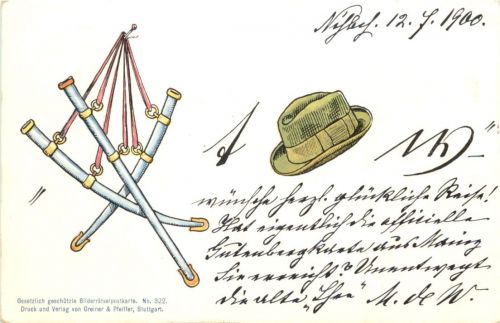 12. 7. 1900.
wünsche herzl. glückliche Reise!
Hat eigentlich die officielle
Gutenbergkarte aus Mainz
Sie erreicht? Unentwegt
die alte „Ihre" M. de W.
Gesetzlich geschützte Bilderrätselpostkarte. No. 322.
Druck und Verlag von Greiner & Pfeiffer, Stuttgart.